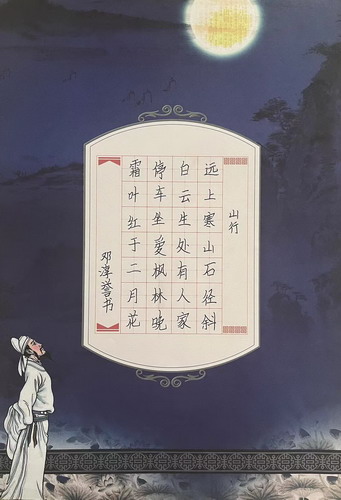 山行
远上寒山石径斜
白云生处有人家
停车坐爱枫林晚
霜叶红于二月花
邓淳誉书